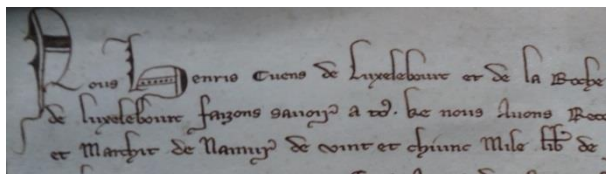 Nous Henris Cuens de Luxelebourc et de la Roche
de luxelebourc faizons savoir a tos. ke nous Avons
et Marchit de Namur de vint et chiunc Mile lib de